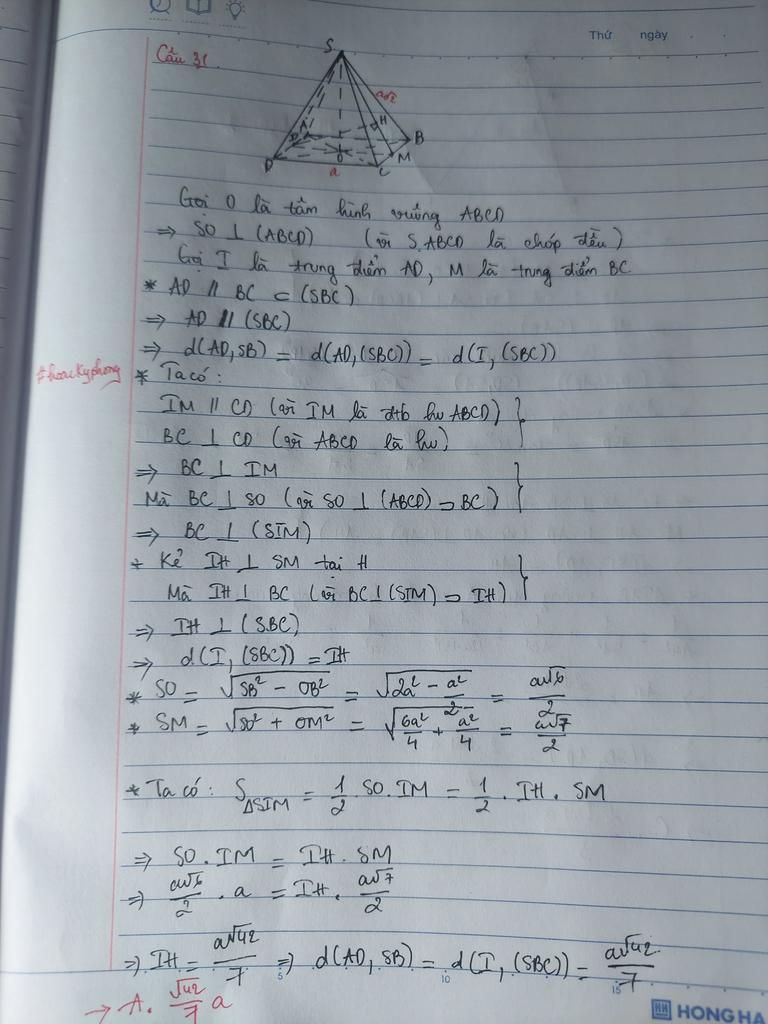 Thứ ngày
Câu 31
S
a√2
A
H
I
B
D
O
M
C
a
Gọi O là tâm hình vuông ABCD
⇒ SO ⊥ (ABCD) (vì S.ABCD là chóp đều)
Gọi I là trung điểm AD, M là trung điểm BC
* AD // BC ⊂ (SBC)
⇒ AD // (SBC)
⇒ d(AD,SB) = d(AD,(SBC)) = d(I,(SBC))
#hoacKyphong
* Ta có:
IM // CD (vì IM là đtb hv ABCD)
BC ⊥ CD (vì ABCD là hv)
⇒ BC ⊥ IM
Mà BC ⊥ SO (vì SO ⊥ (ABCD) ⊃ BC)
⇒ BC ⊥ (SIM)
+ Kẻ IH ⊥ SM tại H
Mà IH ⊥ BC (vì BC ⊥ (SIM) ⊃ IH)
⇒ IH ⊥ (SBC)
⇒ d(I,(SBC)) = IH
* SO = √(SB² - OB²) = √(2a² - a²/2) = a√6/2
* SM = √(SO² + OM²) = √(6a²/4 + a²/4) = a√7/2
* Ta có: S_ΔSIM = 1/2 . SO . IM = 1/2 . IH . SM
⇒ SO . IM = IH . SM
⇒ a√6/2 . a = IH . a√7/2
⇒ IH = a√42/7 ⇒ d(AD,SB) = d(I,(SBC)) = a√42/7
5 10 15
→ A. √42/7 a
HH HONG HA